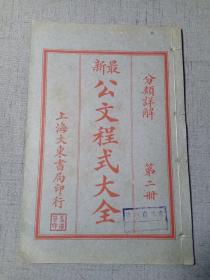 分類詳解
第二冊
最新
公文程式大全
上海大東書局印行